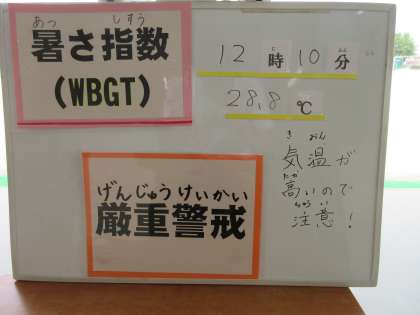 あつ しすう
暑さ指数
(WBGT)
12時10分
28.8℃
げんじゅうけいかい
厳重警戒
きおん
気温が
たか
高いので
ちゅうい
注意!